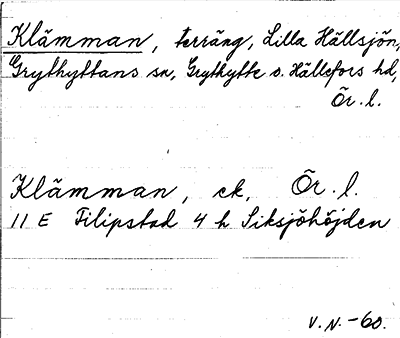 Klämman, terräng, Lilla Hällsjön,
Grythyttans sn, Grythytte o. Hällefors hd,
Ör. l.
Klämman, ek, Ör. l.
11 E Filipstad 4 h Siksjöhöjden
V.N.-60.